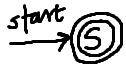 start
S